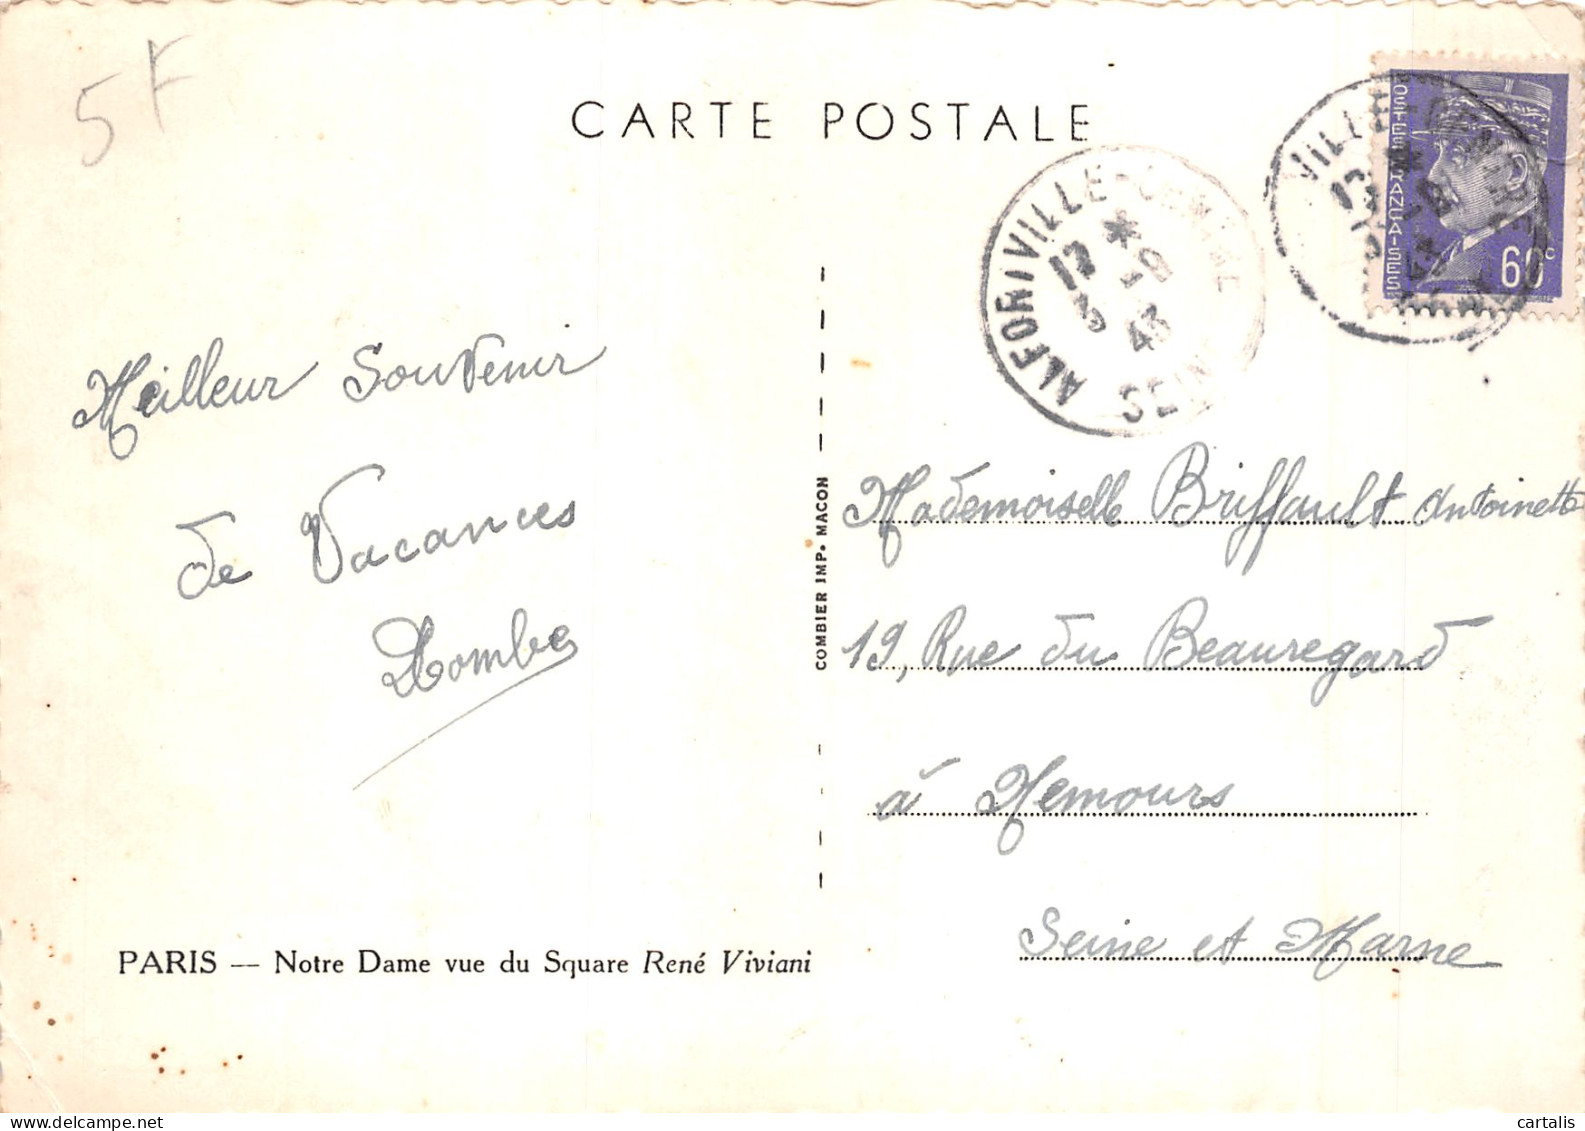 5F
CARTE POSTALE
POSTES FRANÇAISES
60c
ALFORTVILLE
12 * 9
43
SEINE
Meilleur Souvenir
de Vacances
COMBIER IMP. MACON
Mademoiselle Briffault Antoinette
19, Rue du Beauregard
à Nemours
Seine et Marne
PARIS — Notre Dame vue du Square René Viviani
cartalis
www.delcampe.net